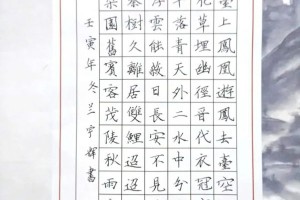 臺上鳳凰遊鳳去臺空
花草埋幽徑晉代衣冠
落青天外二水中分
雲能蔽日長安不見
秦樹久離居雙鯉迢迢
梁園舊賓客茂陵秋雨
壬寅年冬兰宁輝書